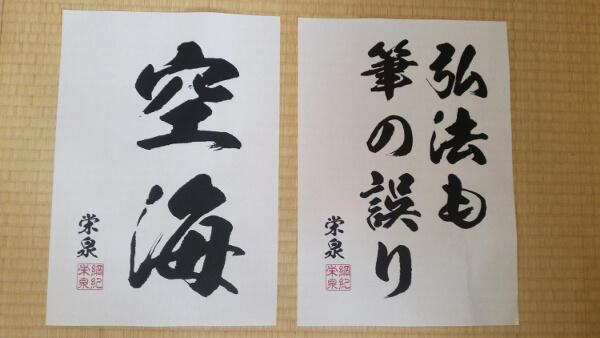 空海
栄泉
綱紀
栄泉
弘法も
筆の誤り
栄泉
綱紀
栄泉